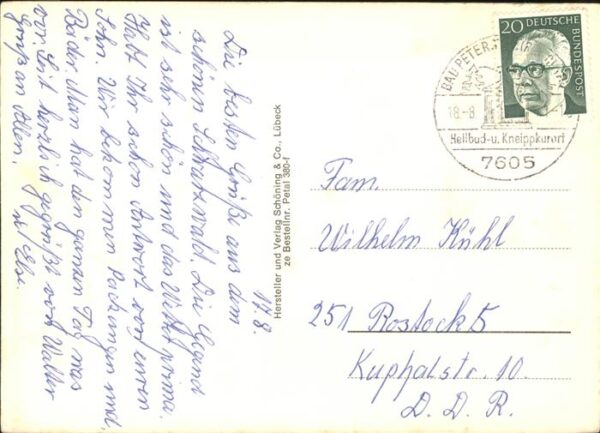 17.8.
Die besten Grüße aus dem
schönen Schwarzwald. Die Gegend
ist sehr schön und das Wetter prima.
Habt Ihr schon Antwort von euren
Sohn. Wir bekommen Packungen und
Bäder. Man hat den ganzen Tag was
vor. Seit herzlich gegrüßt von Walter
Gruß an Allen. u. Else.
Hersteller und Verlag Schöning & Co., Lübeck
ze Bestellnr. Petal 380-f
20 DEUTSCHE BUNDESPOST
BAD PETERSTAL
18.-8.
Heilbad-u. Kneippkurort
7605
Fam.
Wilhelm Kühl
251 Rostock 5
Kuphalstr. 10
D. D. R.